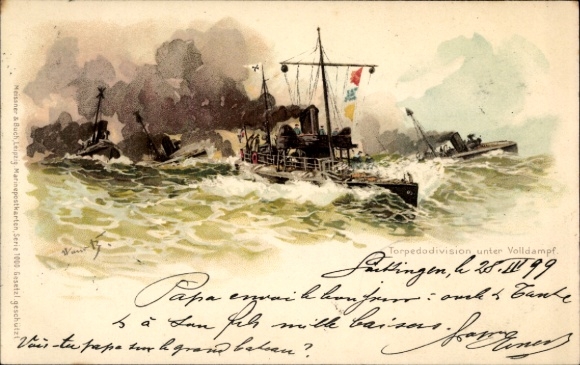 Meissner & Buch, Leipzig. Marinepostkarten, Serie 1060. Gesetzl. geschützt.
Torpedodivision unter Volldampf.
Säckingen, le 28 IV 99
Papa envoi le bonjour: oncle & Tante
& à son fils mille baisers.
Vois-tu papa sur le grand bateau?